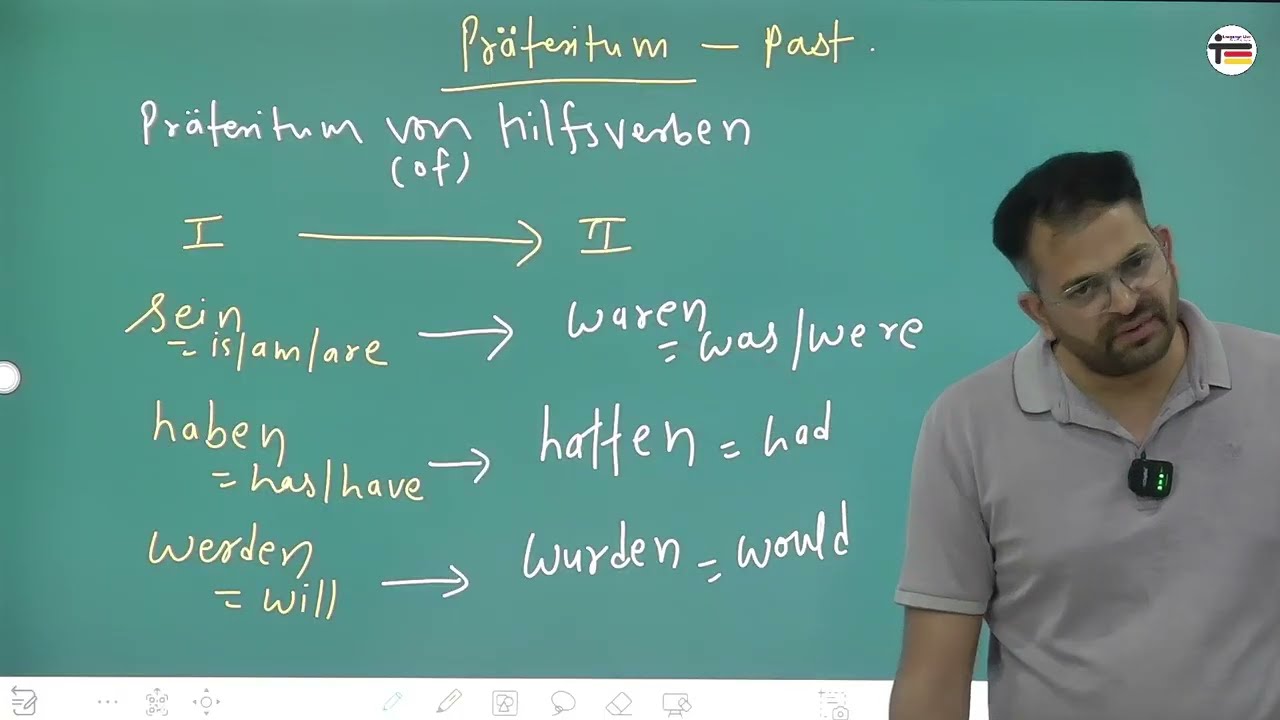 Präteritum – Past.
Präteritum von hilfsverben
(of)
I → II
sein → waren
= is/am/are = was/were
haben → hatten = had
= has/have
werden → wurden = would
= will